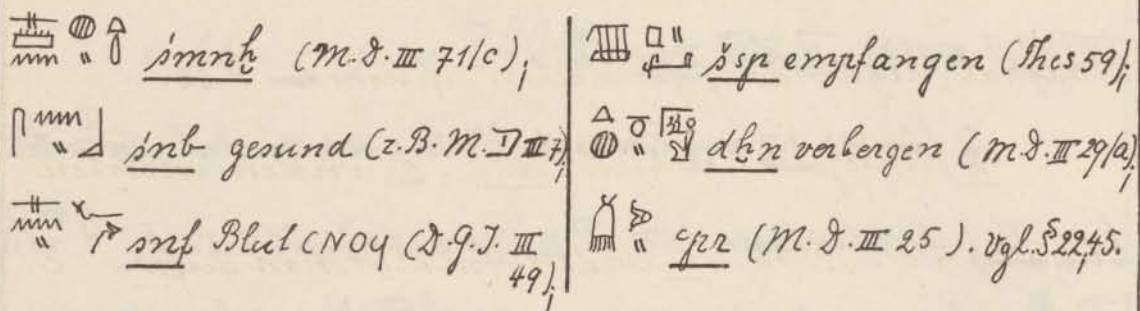 śmnḫ (M.D. III 71/c);
śnb gesund (z.B. M.D III 7);
snf Blut CNOϤ (D.G.I. III
49);
šsp empfangen (Thes 59);
dḫn verbergen (M.D. III 29/a);
ꜥpr (M.D. III 25). Vgl. § 22,45.